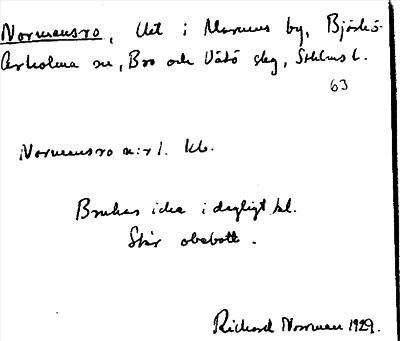 Normansro, Uet i Marums by, Björkö-
Arholma sn, Bro och Vätö skg, Sthlms l.
63
Normansro a:r 1. kb.
Brukas icke i dagligt tal.
Står obebott.
Richard Norrman 1929.